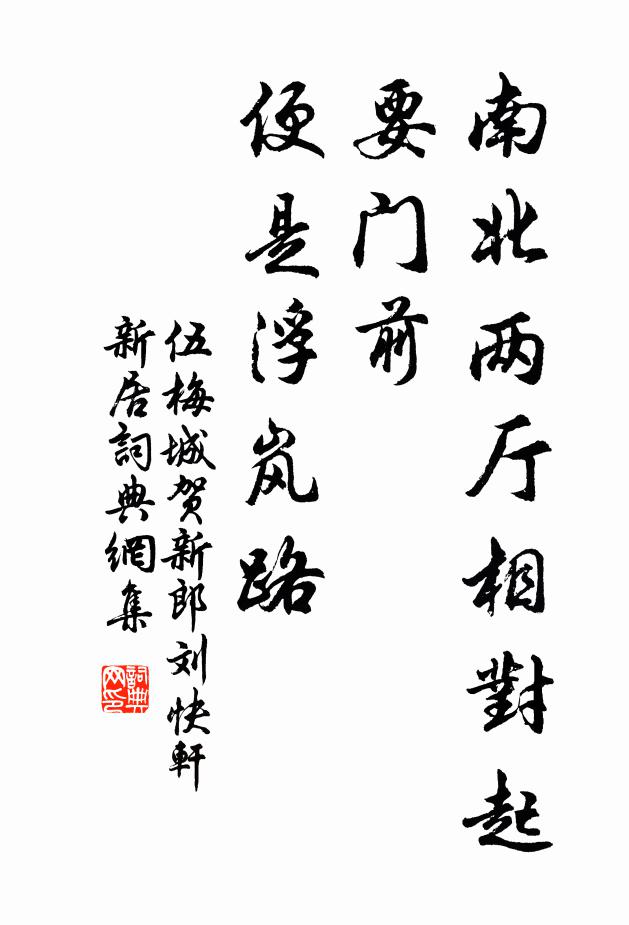 南北两厅相對起
要门前
便是浮岚路
伍梅城贺新郎刘怏軒
新居詞典網集
詞典
网印